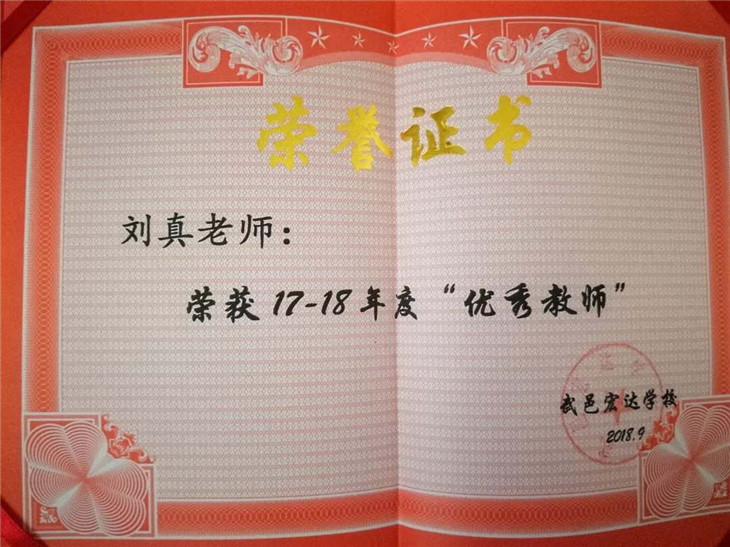 荣誉证书
刘真老师：
荣获17-18年度“优秀教师”
武邑宏达学校
2018.9